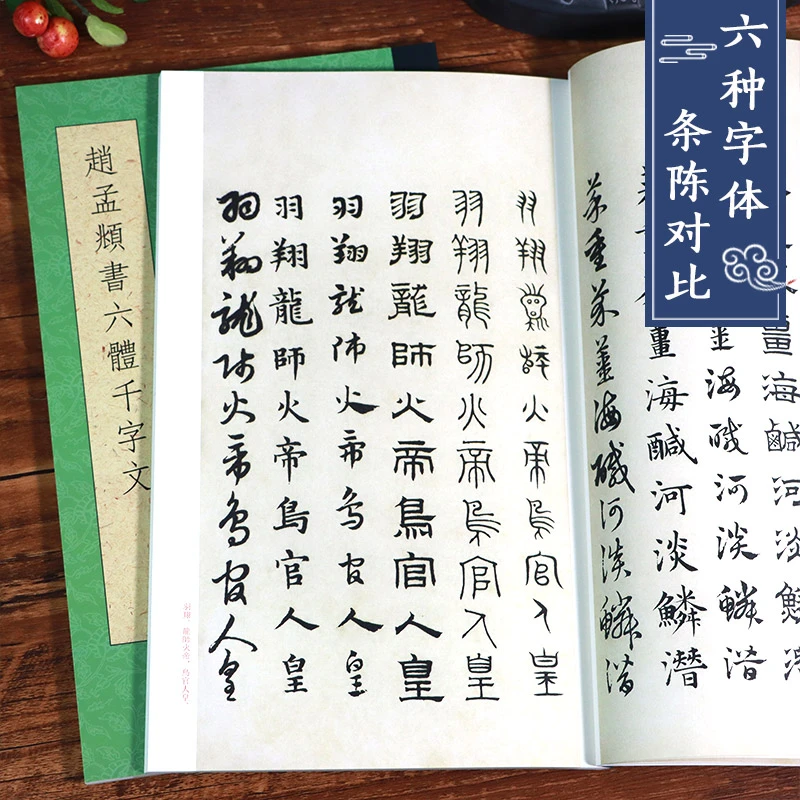 六种字体
条陈对比
趙孟頫書六體千字文
薑海鹹河淡
薑海鹹河淡鱗潛
薑海鹹河淡鱗潛
菜重芥薑海鹹河淡鱗潛
羽翔龍師火帝鳥官人皇
羽翔龍師火帝鳥官人皇
羽翔龍師火帝鳥官人皇
羽翔龍師火帝鳥官人皇
羽翔龍師火帝鳥官人皇
羽翔龍師火帝鳥官人皇
羽翔。龍師火帝，鳥官人皇。